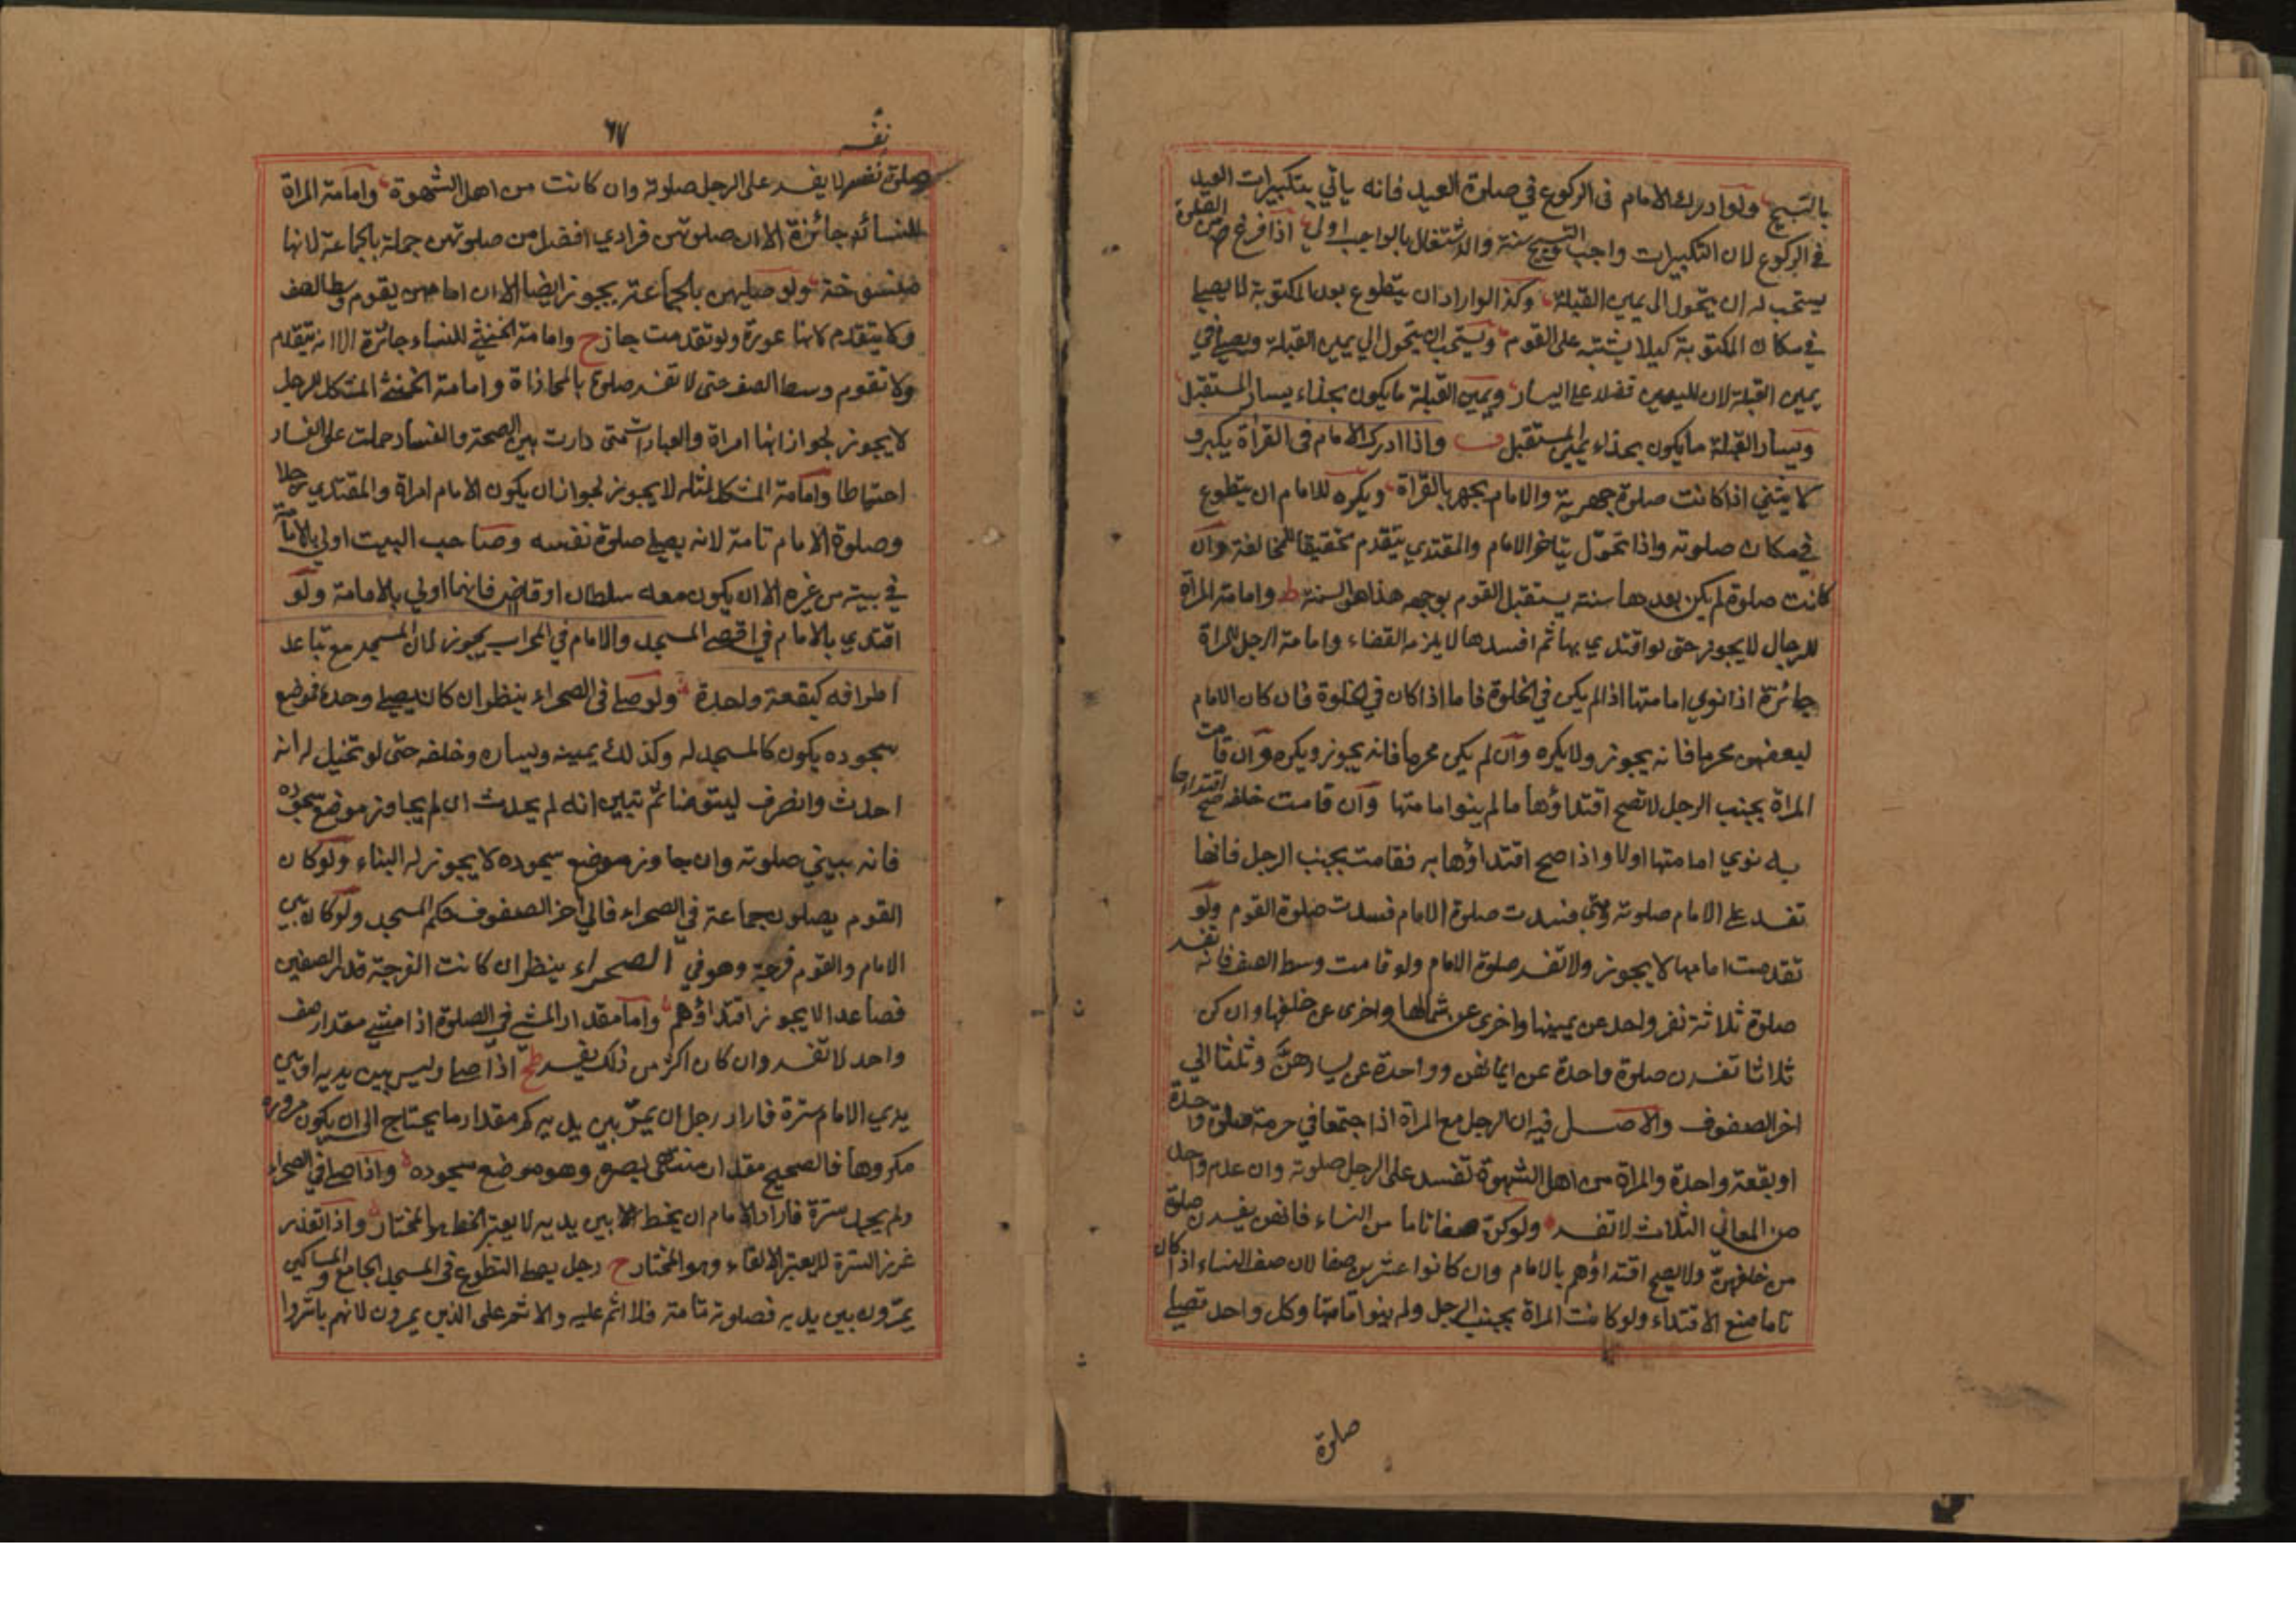 بالتسبيح ولو ادرك الامام فى الركوع في صلوة العيد فانه ياتي بتكبيرات العيد
في الركوع لان التكبيرات واجب والتسبيح سنة والاشتغال بالواجب اولى اذا فرغ من الصلوة
يستحب له ان يتحول الى يمين القبلة وكذا لو اراد ان يتطوع بعد المكتوبة لا يصلي
في مكان المكتوبة كيلا يشتبه على القوم ويستحب ان يتحول الي يمين القبلة ويصلي في
يمين القبلة لان لليمين فضلا على اليسار ويمين القبلة ما يكون بحذاء يسار المستقبل
ويسار القبلة ما يكون بحذاء يمين المستقبل ف واذا ادرك الامام فى القراة يكبر و
لا يثني اذا كانت صلوة جهرية والامام يجهر بالقراة ويكره للامام ان يتطوع
في مكان صلوته واذا تحول يتاخر الامام والمقتدي يتقدم تحقيقا للمخالفة وان
كانت صلوة لم يكن بعدها سنة يستقبل القوم بوجهه هذا هو السنة ط وامامة المراة
للرجال لا يجوز حتى لو اقتدي بها ثم افسدها لا يلزمه القضاء وامامة الرجل للمراة
جائزة اذا نوي امامتها اذا لم يكن في الخلوة فاما اذا كان في الخلوة فان كان الامام
لبعضهن محرما فانه يجوز ولا يكره وان لم يكن محرما فانه يجوز ويكره وان قامت
المراة بجنب الرجل لا تصح اقتداؤها ما لم ينوا امامتها وان قامت خلفه صح اقتداءها
به نوي امامتها اولا واذا صح اقتداؤها به فقامت بجنب الرجل فانها
تفسد على الامام صلوته ومتى فسدت صلوة الامام فسدت صلوة القوم ولو
تقدمت امامها لا يجوز ولا تفسد صلوة الامام ولو قامت وسط الصف فانه تفسد
صلوة ثلاثة نفر واحد عن يمينها واخرى عن شمالها واخرى عن خلفها وان كن
ثلاثا تفسدن صلوة واحدة عن ايمانهن وواحدة عن يسارهن وثلثا الي
اخر الصفوف والاصل فيه ان الرجل مع المراة اذا اجتمعا في حرمة صلوة واحدة
او بقعة واحدة والمراة من اهل الشهوة تفسد على الرجل صلوته وان عدم واحد
من المعاني الثلاث لا تفسد ولو كن صفا تاما من النساء فانهن يفسدن صلوة
من خلفهن ولا يصح اقتداؤهم بالامام وان كانوا عشرين صفا لان صف النساء اذا كان
تاما منع الاقتداء ولو كانت المراة بجنب الرجل ولم ينوا امامتها وكل واحد تصلي
صلوة
٦٧
نفسه
صلوة نفسه لا يفسد على الرجل صلوته وان كانت من اهل الشهوة وامامة المراة
للنساء جائزة الا ان صلوتهن فرادي افضل من صلوتهن جملة بالجماعة لانها
منسوخة ولو صليهن بالجماعة يجوز ايضا الا ان امامهن يقوم وسط الصف
ولا يتقدم لانها عورة ولو تقدمت جاز ح وامامة الخنثي للنساء جائزة الا انه يتقدم
ولا تقوم وسط الصف حتى لا تفسد صلوته بالمحاذاة وامامة الخنثى المشكل للرجل
لا يجوز لجواز انها امراة والعبادات متى دارت بين الصحة والفساد حملت على الفساد
احتياطا وامامة المشكل لمثله لا يجوز لجواز ان يكون الامام امراة والمقتدي رجلا
وصلوة الامام تامة لانه يصلي صلوة نفسه وصاحب البيت اولى بالامامة
في بيته من غيره الا ان يكون معه سلطان او قاض فانهما اولي بالامامة ولو
اقتدي بالامام في اقصى المسجد والامام في المحراب يجوز لان المسجد مع تباعد
اطرافه كبقعة واحدة ولو صلى فى الصحراء ينظر ان كان يصلي وحده فموضع
سجوده يكون كالمسجد له وكذلك يمينه ويساره وخلفه حتى لو تخيل له انه
احدث وانصرف ليتوضا ثم تبين انه لم يحدث ان لم يجاوز موضع سجوده
فانه يبني صلوته وان جاوز موضع سجوده لا يجوز له البناء ولو كان
القوم يصلون جماعة في الصحراء فالي اخر الصفوف حكم المسجد ولو كان بين
الامام والقوم فرجة وهو في الصحراء ينظر ان كانت الفرجة قدر الصفين
فصاعدا لا يجوز اقتداؤهم واما مقدار المشي في الصلوة اذا مشي مقدار صف
واحد لا تفسد وان كان اكثر من ذلك يفسد طح اذا صلى وليس بين يديه او بين
يدي الامام سترة فاراد رجل ان يمر بين يديه كم مقدار ما يحتاج الى ان يكون مروره
مكروها فالصحيح مقدار منتهى بصره وهو موضع سجوده واذا صلى في الصحراء
ولم يجد سترة فاراد الامام ان يخط بين يديه لا يعتبر الخط هو المختار واذا تعذر
غرز السترة لا يعتبر الالقاء وهو المختار ح رجل يصلي التطوع فى المسجد الجامع والمساكين
يمرون بين يديه فصلوته تامة فلا اثم عليه والاثم على الذين يمرون لانهم باشروا